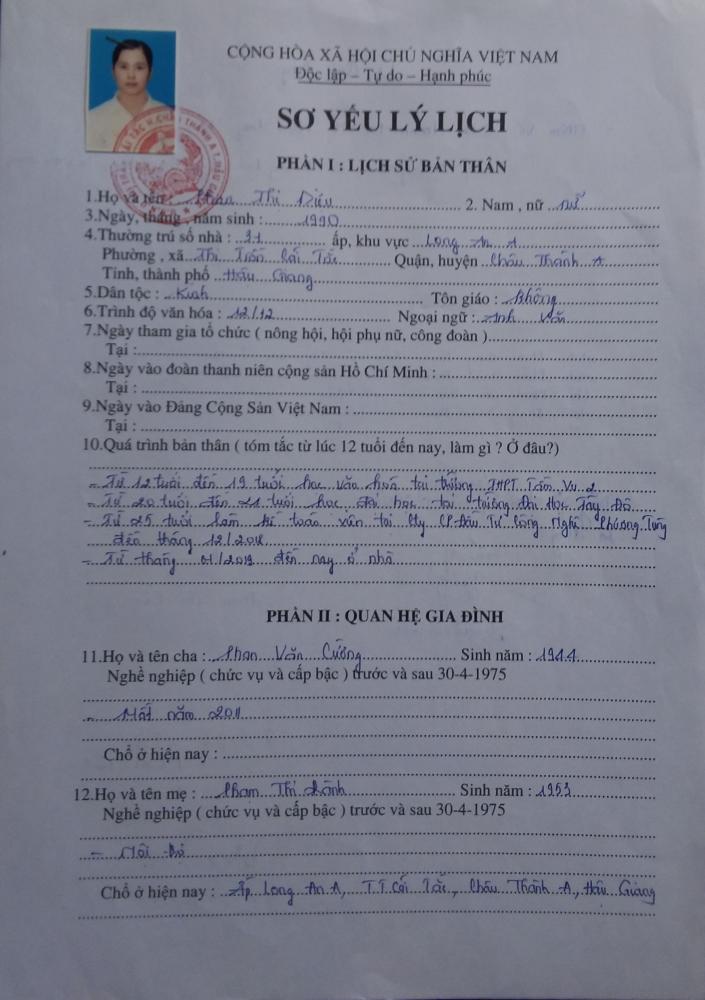 CỘNG HÒA XÃ HỘI CHỦ NGHĨA VIỆT NAM
Độc lập – Tự do – Hạnh phúc
SƠ YẾU LÝ LỊCH
PHẦN I : LỊCH SỬ BẢN THÂN
1.Họ và tên : Phan Thị Diệu 2. Nam , nữ nữ
3.Ngày, tháng , năm sinh : 1990
4.Thường trú số nhà : 31 ấp, khu vực Long An A
Phường , xã Thị Trấn Cái Tắc Quận, huyện Châu Thành A
Tỉnh, thành phố Hậu Giang
5.Dân tộc : Kinh Tôn giáo : Không
6.Trình độ văn hóa : 12/12 Ngoại ngữ : Anh Văn
7.Ngày tham gia tổ chức ( nông hội, hội phụ nữ, công đoàn )
Tại :
8.Ngày vào đoàn thanh niên cộng sản Hồ Chí Minh :
Tại :
9.Ngày vào Đảng Cộng Sản Việt Nam :
Tại :
10.Quá trình bản thân ( tóm tắc từ lúc 12 tuổi đến nay, làm gì ? Ở đâu?)
- Từ 12 tuổi đến 19 tuổi học văn hoá tại trường THPT Tầm Vu 2
- Từ 20 tuổi đến 24 tuổi học đại học tại trường Đại Học Tây Đô
- Từ 25 tuổi làm kế toán viên tại Cty CP Đầu Tư Công Nghệ Phương Tùng
đến tháng 12/2018
- Từ tháng 01/2019 đến nay ở nhà
PHẦN II : QUAN HỆ GIA ĐÌNH
11.Họ và tên cha : Phan Văn Cường Sinh năm : 1944
Nghề nghiệp ( chức vụ và cấp bậc ) trước và sau 30-4-1975
- Mất năm 2011
Chổ ở hiện nay :
12.Họ và tên mẹ : Phạm Thị Sinh năm : 1953
Nghề nghiệp ( chức vụ và cấp bậc ) trước và sau 30-4-1975
- Nội trợ
Chổ ở hiện nay : Ấp Long An A, T.T Cái Tắc, Châu Thành A, Hậu Giang